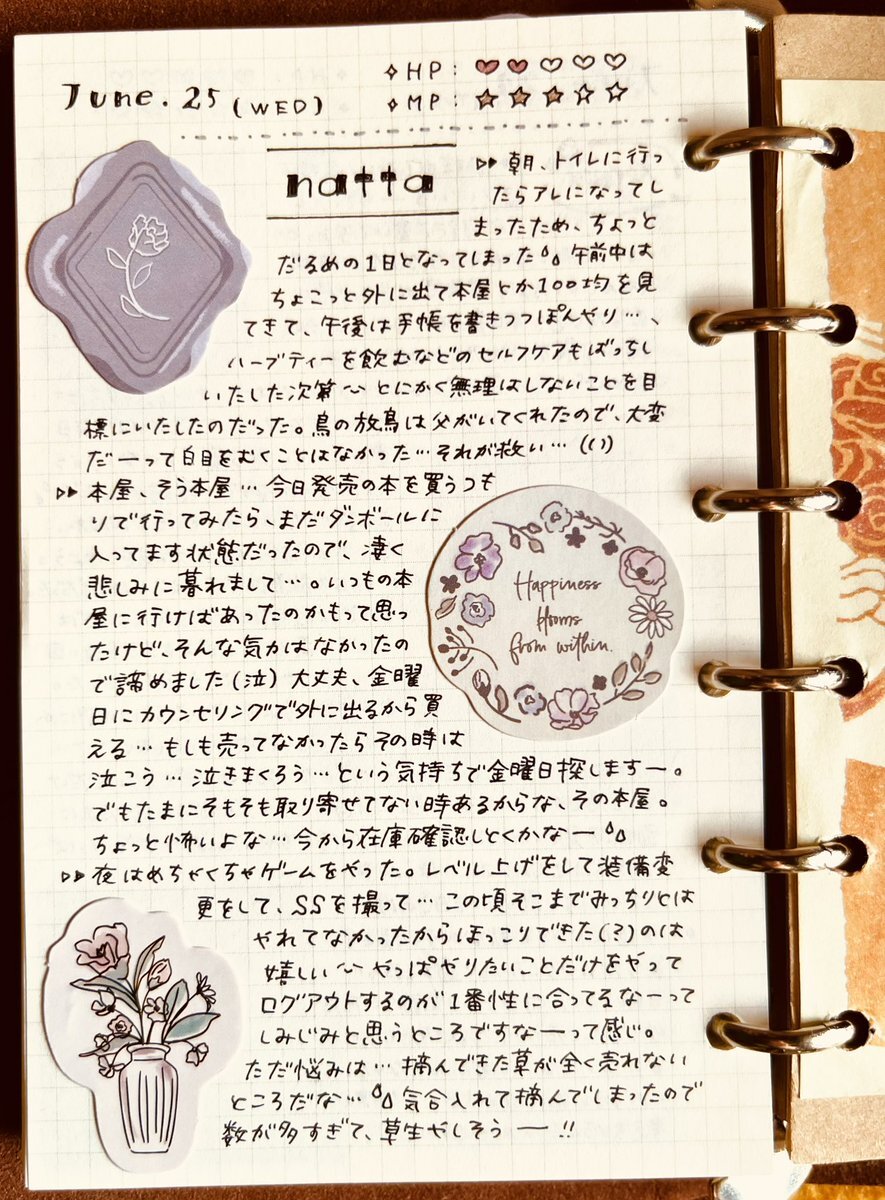 June. 25 (WED)
✧HP: ♥♥♡♡♡
✧MP: ★★★☆☆
natta
▷▷ 朝、トイレに行っ
たらアレになってし
まったため、ちょっと
だるめの1日となってしまった💧午前中は
ちょこっと外に出て本屋とか100均を見
てきて、午後は手帳を書きつつぽんやり…、
ハーブティーを飲むなどのセルフケアもばっちし
いたした次第〜 とにかく無理はしないことを目
標にいたしたのだった。鳥の放鳥は父がいてくれたので、大変
だーって白目をむくことはなかった…それが救い…(い)
▷▷ 本屋、そう本屋…今日発売の本を買うつも
りで行ってみたら、まだダンボールに
入ってます状態だったので、凄く
悲しみに暮れまして…。いつもの本
屋に行けばあったのかもって思っ
たけど、そんな気力はなかったの
で諦めました(泣) 大丈夫、金曜
日にカウンセリングで外に出るから買
える…もしも売ってなかったらその時は
泣こう…泣きまくろう…という気持ちで金曜日探しますー。
でもたまにそもそも取り寄せてない時あるからな、その本屋。
ちょっと怖いよな…今から在庫確認しとくかなー💧
Happiness
blooms
from within.
▷▷ 夜はめちゃくちゃゲームをやった。レベル上げをして装備変
更をして、SSを撮って…この頃そこまでみっちりとは
やれてなかったからほっこりできた(?)のは
嬉しい〜 やっぱやりたいことだけをやって
ログアウトするのが1番性に合ってるなーって
しみじみと思うところですなーって感じ。
ただ悩みは…摘んできた草が全く売れない
ところだな…💧気合入れて摘んでしまったので
数が多すぎて、草生やしそうー!!